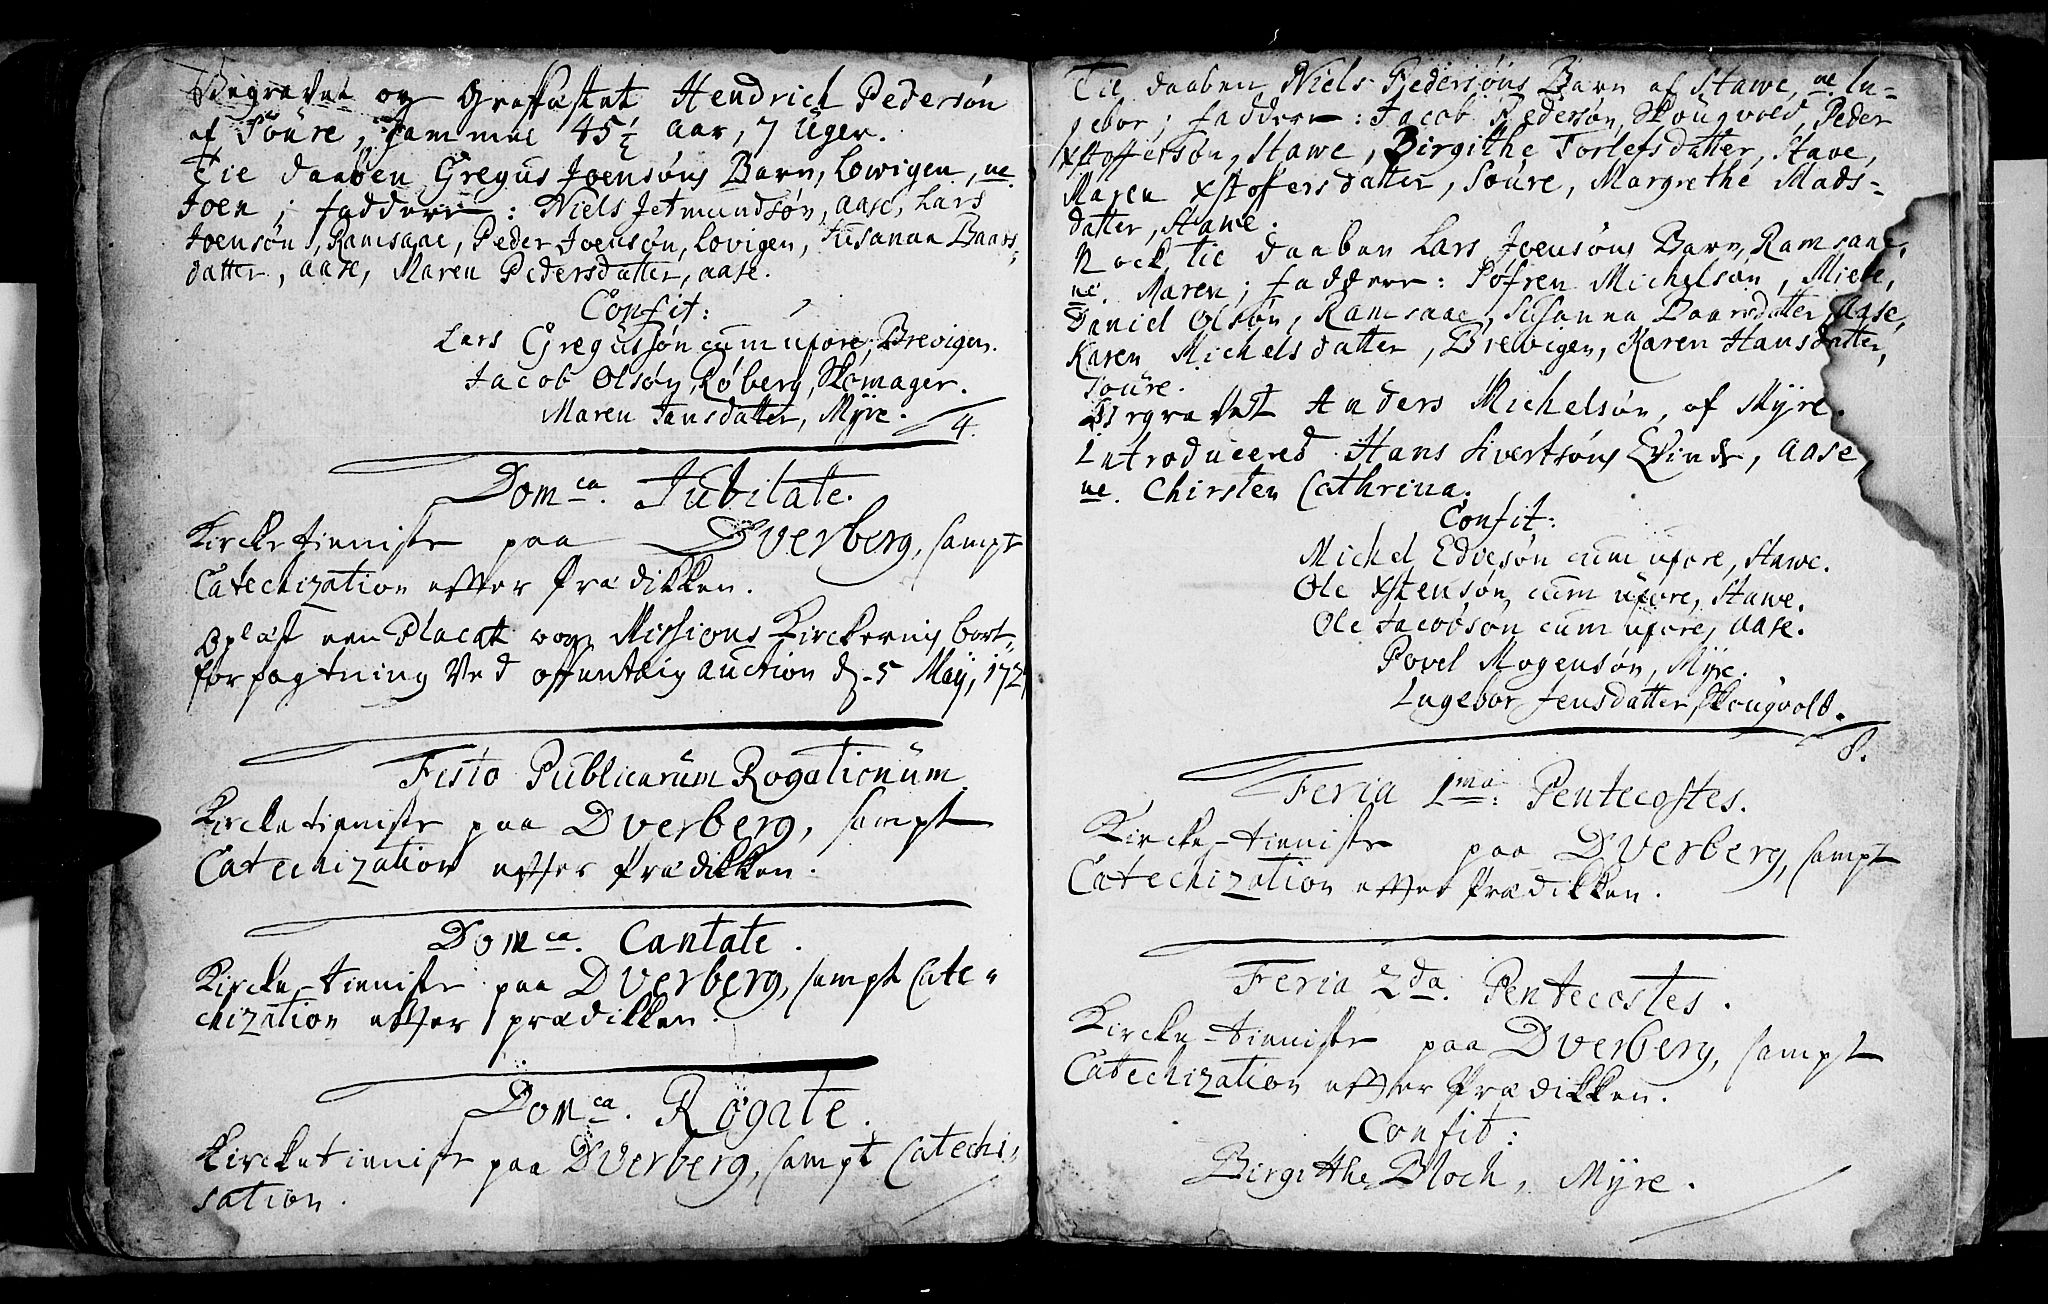 Begravet og Graffæstet Hendrich Pedersøn
af Söure, gammel 45½ aar, 7 Uger.
Til daaben Gregus Joensøns Barn, Lowigen, ne.
Joen; faddere: Niels Jetmundsøn, Aase, Lars
Joensøn, Ramsaae, Peder Joensøn, Lovigen, Susanna Baars-
datter, Aase, Maren Pedersdatter, Aase.
Confit:
Lars Gregussøn cum uxore, Brevigen.
Jacob Olsøn, Røberg, Skomager.
Maren Jansdatter, Mÿre.
4.
Domca. Jubilate.
Kircketienniste paa Dverberg, sampt
Catechization effter Prædikken.
Oplæst een Placat om Missions Kirckernis bort-
forpagtning ved offentlig auction d. 5 Maÿ, 172
Festo Publicarum Rogationüm
Kircketienniste paa Dverberg, sampt
Catechization effter Prædikken.
Domca. Cantate.
Kircke-tienniste paa Dverberg, sampt Cate-
chization effter prædikken.
Domca. Rogate.
Kircketienniste paa Dverberg, sampt Catechi-
sation.
Til daaben Niels Pedersøns Barn af Stawe, ne. In-
gebor; faddere: Jacob Pedersøn, Skougvold, Peder
Xstoffersøn, Stawe, Birgithe Torlefsdatter, Stave,
Maren Xstofersdatter, Soure, Margrethe Mads-
datter, Stawe.
Nock til daaben Lars Joensøns Barn, Ramsaae,
ne. Maren; faddere: Søfren Michelsøn, Miele,
Daniel Olsøn, Ramsaae, Susanna Baarsdatter, Aase,
Karen Michelsdatter, Brewigen, Karen Hansdatter,
Soure.
Begravet Anders Michelsøn, af Mÿre.
Introduceret Hans Sivertsøns Qvinde, Aase
ne. Chirsten Cathrina.
Confit:
Michel Edvesøn cum uxore, Stawe.
Ole Xstensøn cum uxore, Stawe.
Ole Jacobsøn cum uxore, Aase.
Povel Mogensøn, Mÿre.
Ingebor Jensdatter, Skougvold.
8.
Feria 1ma: Pentecostes.
Kircke-tienniste paa Dverberg, sampt
Catechization effter Prædikken.
Feria 2da. Pentecostes.
Kircke-tienniste paa Dverberg, sampt
Catechization effter Prædikken.
Confit:
Birgitthe Bloch, Mÿre.